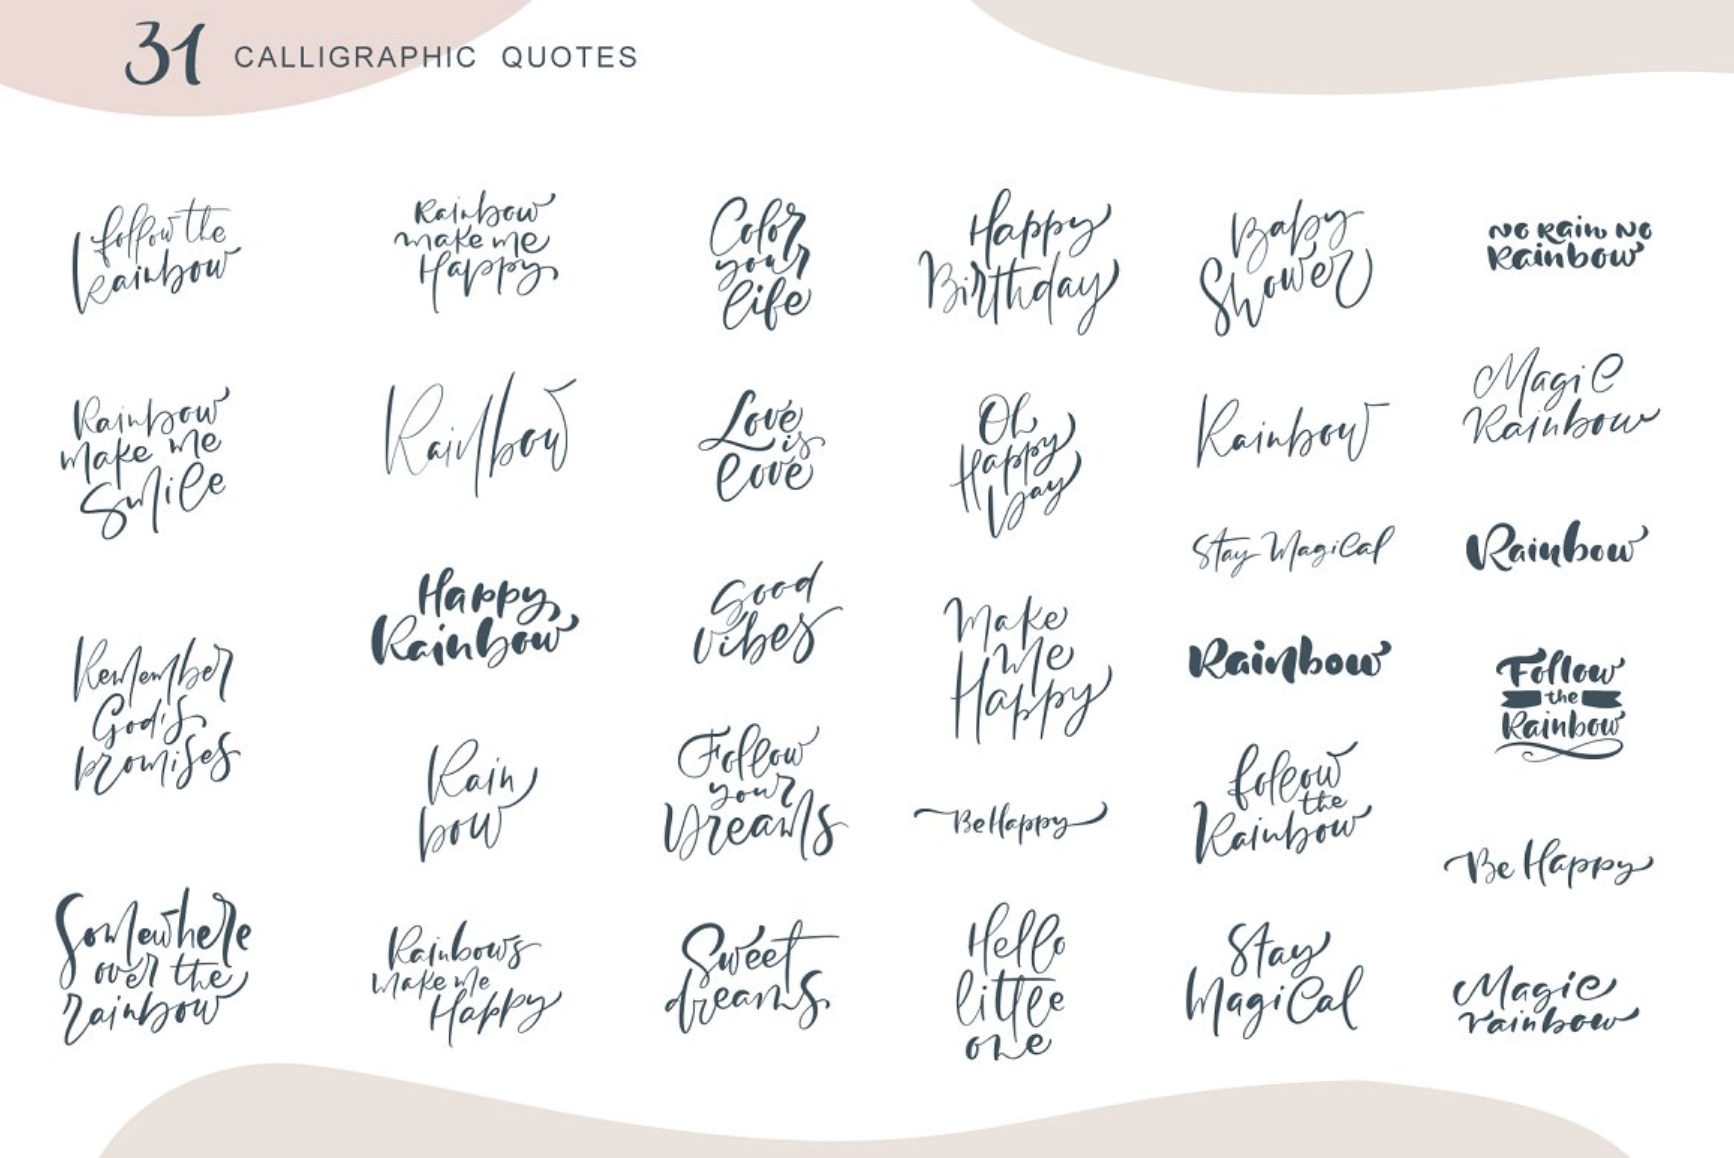 31 CALLIGRAPHIC QUOTES
follow the
Rainbow
Rainbow
make me
Happy
Color
your
life
Happy
Birthday
Baby
Shower
No Rain No
Rainbow
Rainbow
make me
Smile
Rainbow
Love
is
love
Oh
Happy
Day
Rainbow
Magic
Rainbow
Stay Magical
Rainbow
Happy
Rainbow
Good
vibes
Make
Me
Happy
Rainbow
Follow
the
Rainbow
Remember
God's
promises
Rain
bow
Follow
your
Dreams
Be Happy
follow
the
Rainbow
Be Happy
Somewhere
over the
rainbow
Rainbows
make me
Happy
Sweet
dreams
Hello
little
one
Stay
Magical
Magic
rainbow